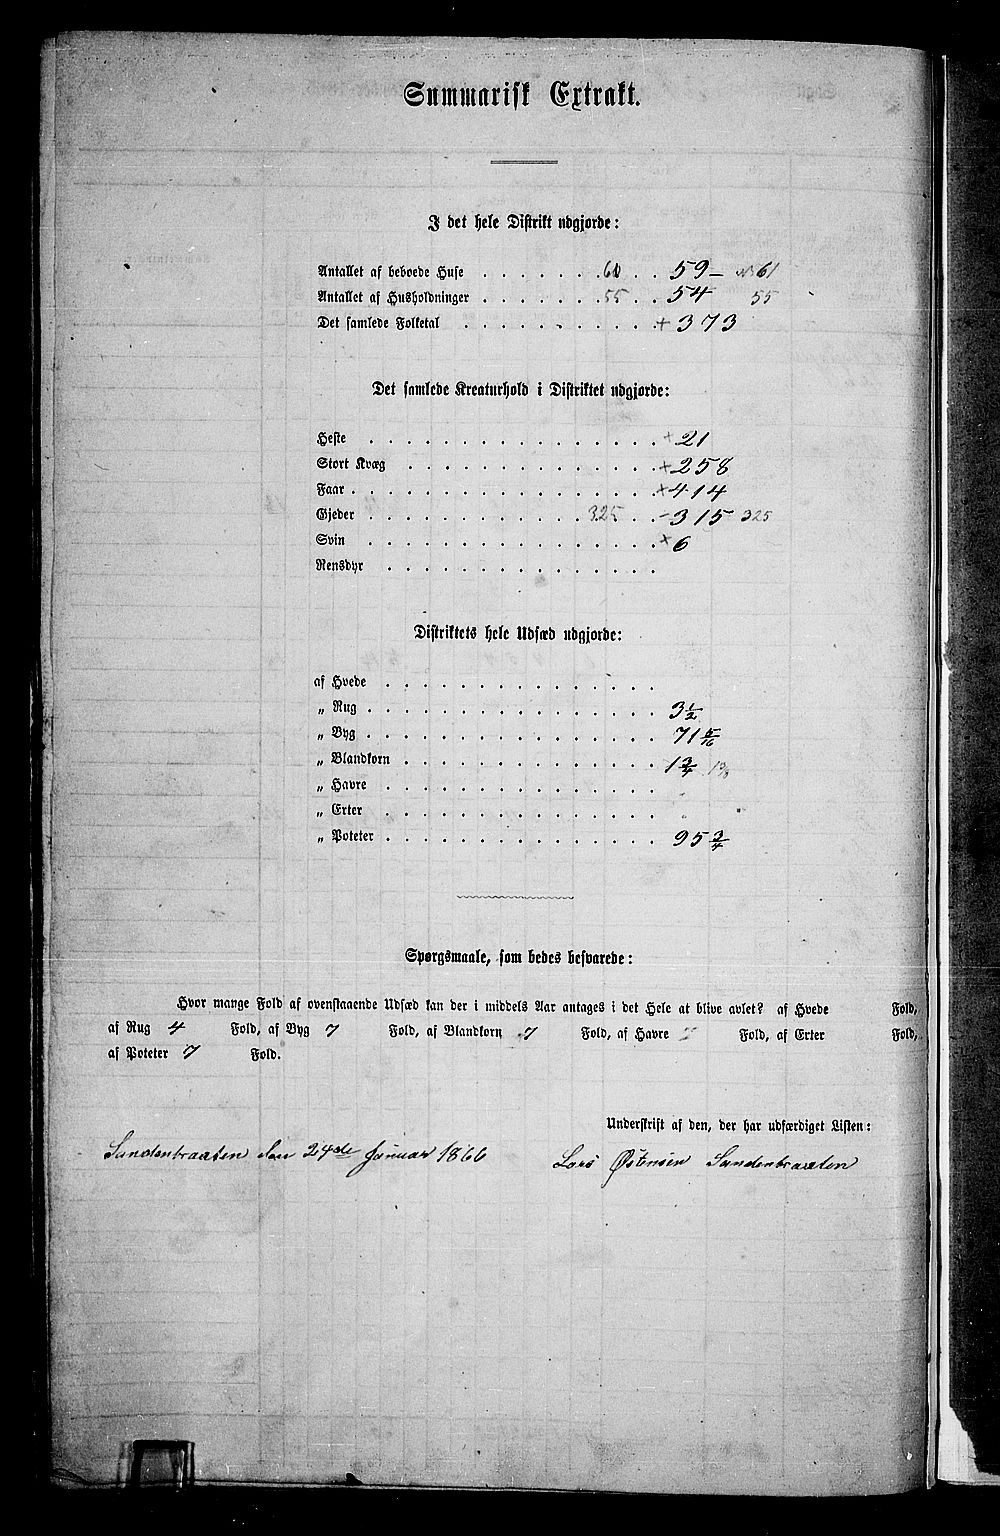 Summarisk Extrakt.
I det hele Distrikt udgjorde:
Antallet af beboede Huse . . . . . . . 60 . . 59 — 61
Antallet af Husholdninger . . . . . . . 55 . . 54 55
Det samlede Folketal . . . . . . . . . . . + 373
Det samlede Kreaturhold i Distriktet udgjorde:
Heste . . . . . . . . . . . . . . . . + 21
Stort Kvæg . . . . . . . . . . . . . . + 258
Faar . . . . . . . . . . . . . . . . . + 414
Gjeder . . . . . . . . . . . . 325 . . - 315 325
Svin . . . . . . . . . . . . . . . . + 6
Rensdyr . . . . . . . . . . . . . . .
Distriktets hele Udsæd udgjorde:
af Hvede . . . . . . . . . . . . . . .
„ Rug . . . . . . . . . . . . . . . . 3 1/2
„ Byg . . . . . . . . . . . . . . . . 71 5/16
„ Blandkorn . . . . . . . . . . . . . . 1 3/4
„ Havre . . . . . . . . . . . . . . .
„ Erter . . . . . . . . . . . . . . .
„ Poteter . . . . . . . . . . . . . . . 95 3/4
Spørgsmaale, som bedes besvarede:
Hvor mange Fold af ovenstaaende Udsæd kan der i middels Aar antages i det Hele at blive avlet? af Hvede Fold,
af Rug 4 Fold, af Byg 7 Fold, af Blandkorn 7 Fold, af Havre Fold, af Erter Fold,
af Poteter 7 Fold.
Underskrift af den, der har udfærdiget Listen:
Sandenbraaten den 24de Januar 1866 Lars Østensen Sandenbraaten